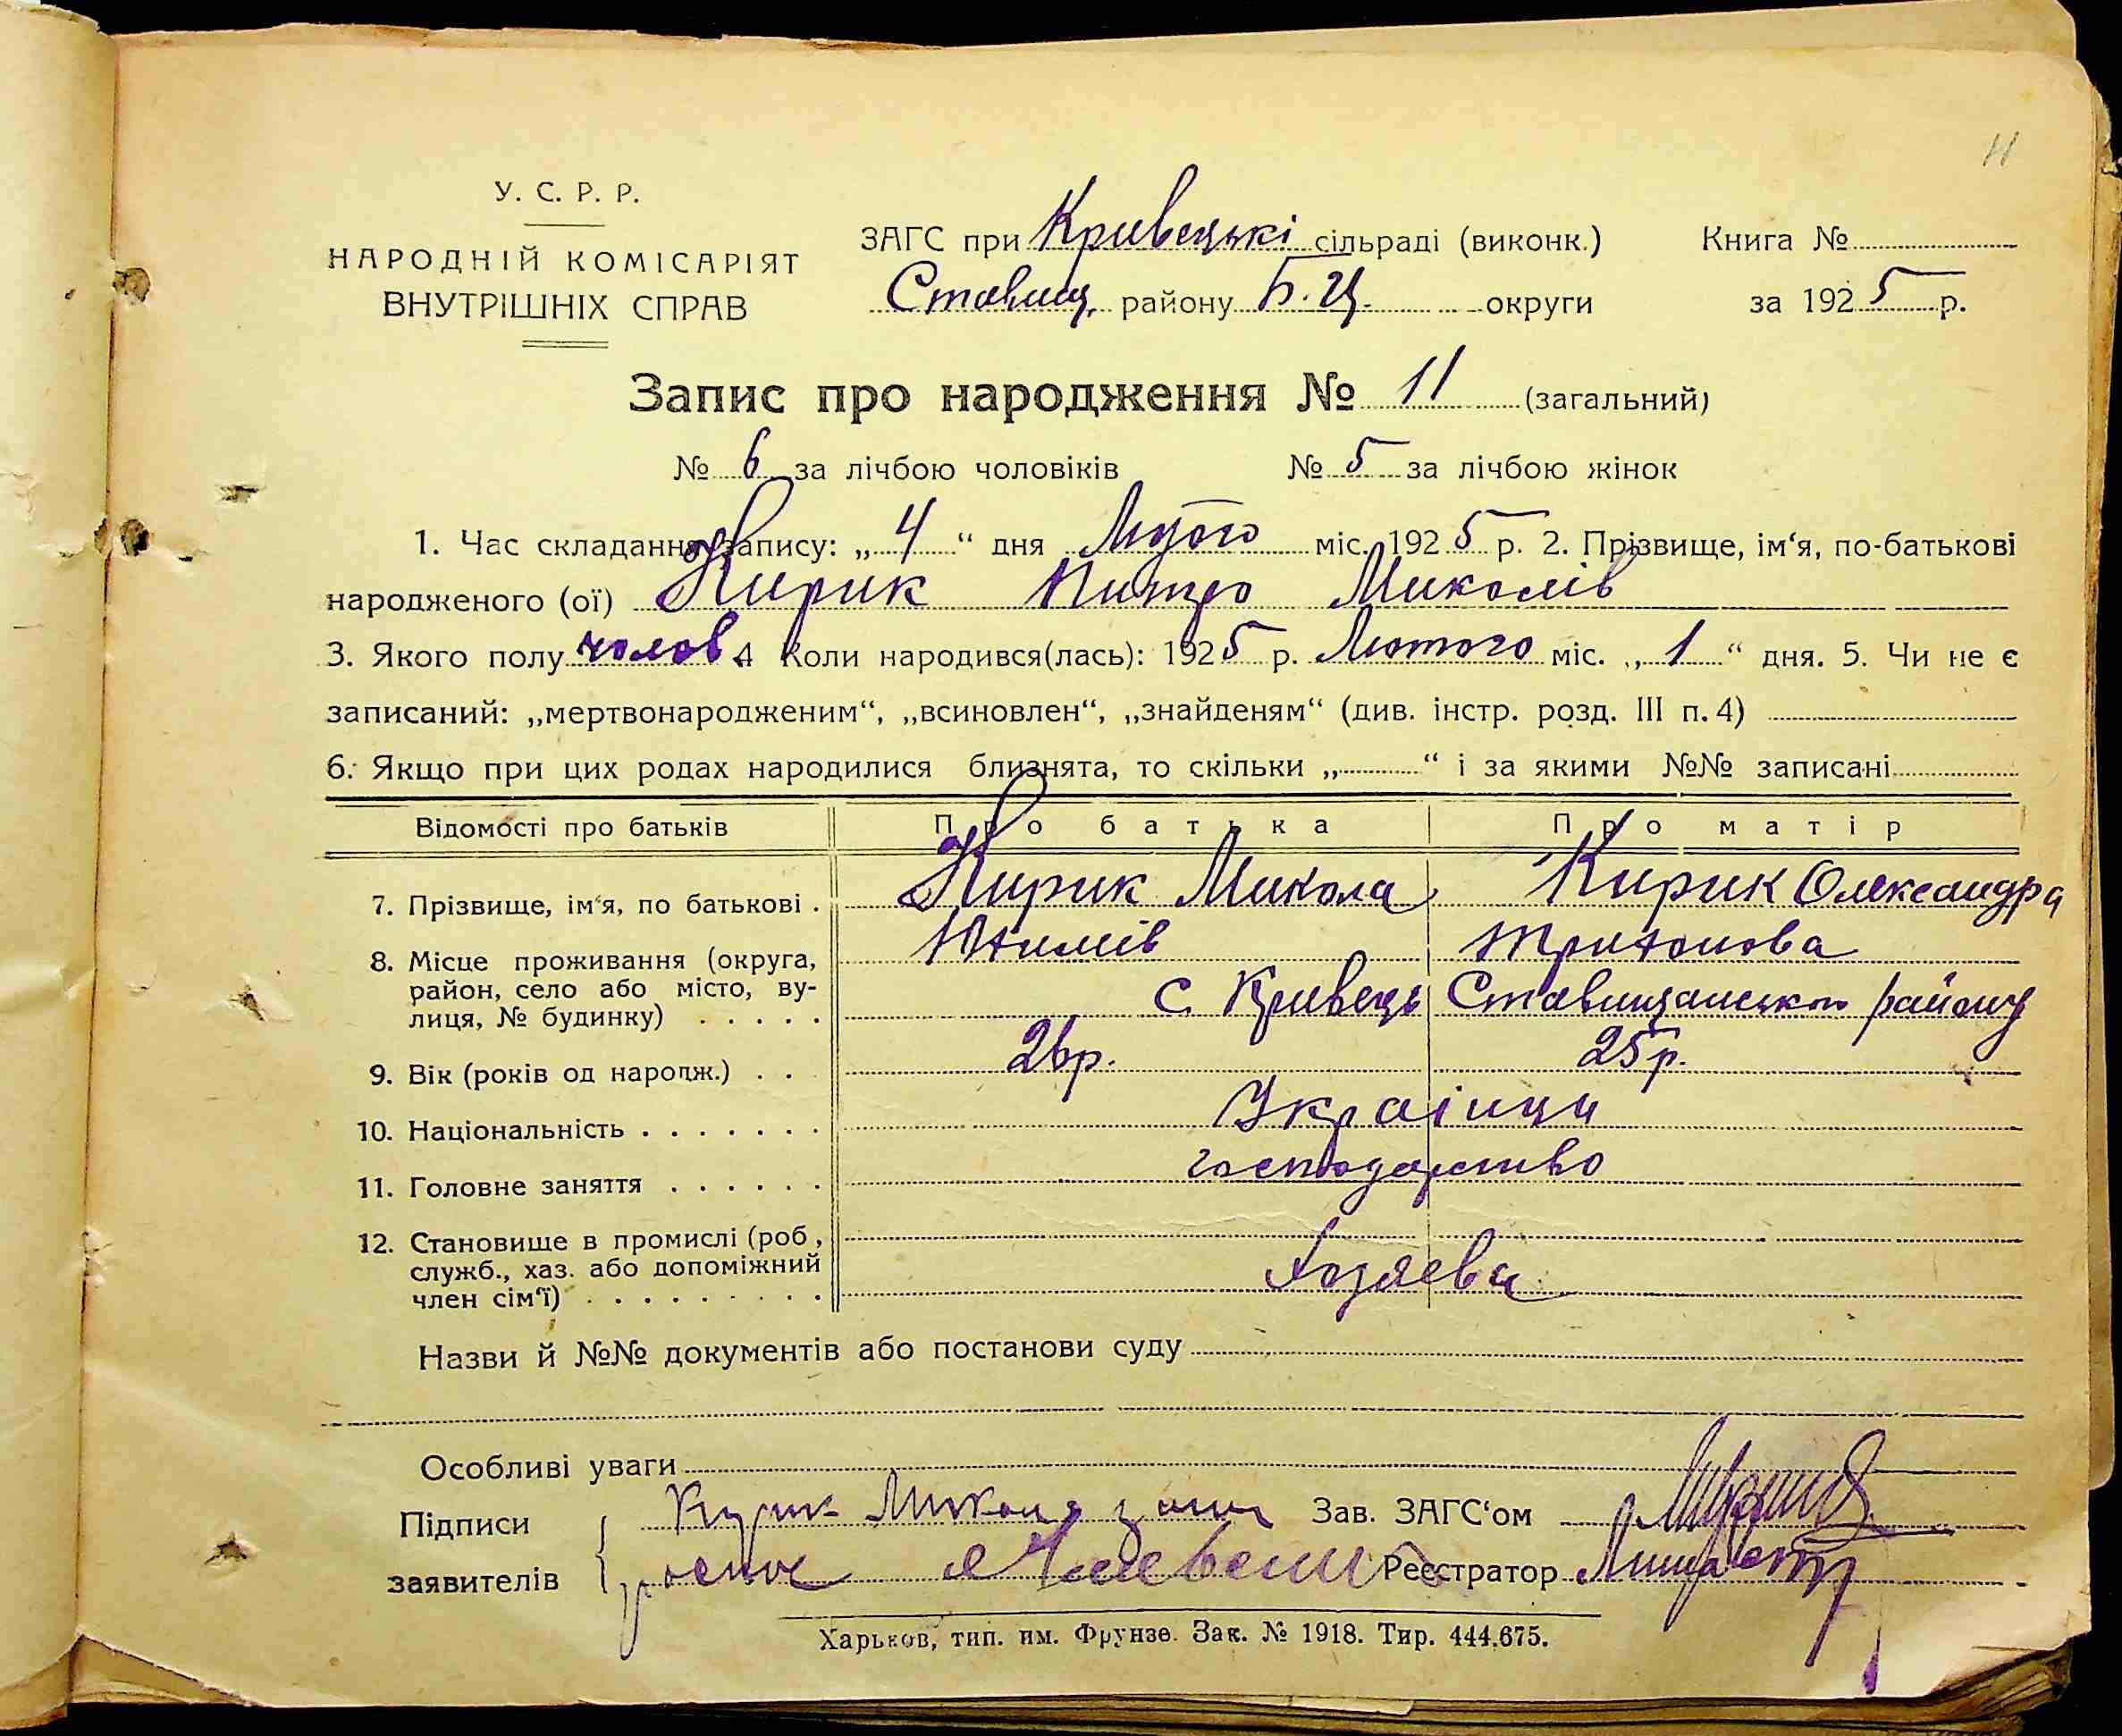 11
У. С. Р. Р.
НАРОДНІЙ КОМІСАРІЯТ
ВНУТРІШНІХ СПРАВ
ЗАГС при Кривецькі сільраді (виконк.)
Ставищ. району Б. Ц. округи
Книга №
за 1925 р.
Запис про народження № 11 (загальний)
№ 6 за лічбою чоловіків № 5 за лічбою жінок
1. Час складання запису: „4“ дня Лютого міс. 1925 р. 2. Прізвище, ім‘я, по-батькові
народженого (ої) Кирик Митро Миколів
3. Якого полу чолов. 4 Коли народився(лась): 1925 р. Лютого міс. „1“ дня. 5. Чи не є
записаний: „мертвонародженим“, „всиновлен“, „знайденям“ (див. інстр. розд. III п. 4)
6. Якщо при цих родах народилися близнята, то скільки „ “ і за якими №№ записані
Відомості про батьків Про батька Про матір
7. Прізвище, ім‘я, по батькові . Кирик Микола Кирик Олександра
Юхимів Трихонова
8. Місце проживання (округа,
район, село або місто, ву-
лиця, № будинку) . . . . . с. Кривець Ставищанського району
9. Вік (років од народж.) . . 26р. 25р.
10. Національність . . . . . . . Українци
11. Головне заняття . . . . . . господарство
12. Становище в промислі (роб,
служб., хаз. або допоміжний
член сім‘ї) . . . . . . . . . Хозяева
Назви й №№ документів або постанови суду
Особливі уваги
Підписи
заявителів
Кирик Микола
Зав. ЗАГС‘ом
Реєстратор
Харьков, тип. им. Фрунзе. Зак. № 1918. Тир. 444.675.